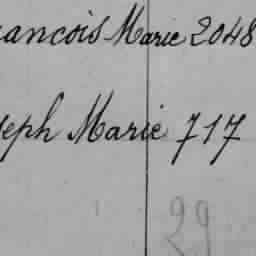 ancois Marie 2048
seph Marie 717
29